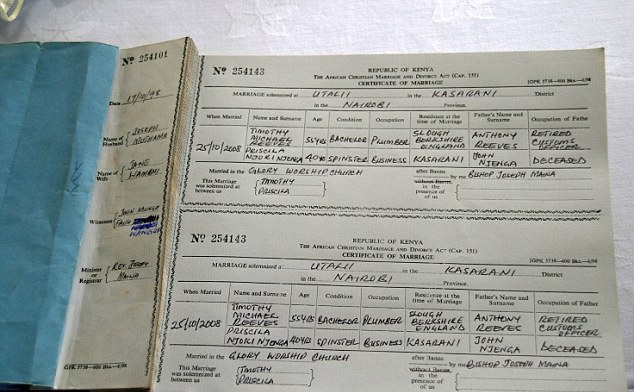 Nº 254101
Date 17/10/98
Name of Husband JOSEPH
Name of Wife JANE
Witnesses JOHN
Minister or Registrar REV.
GPK 5738—600 Bks—4/98
Nº 254143
REPUBLIC OF KENYA
THE AFRICAN CHRISTIAN MARRIAGE AND DIVORCE ACT (CAP. 151)
CERTIFICATE OF MARRIAGE
(GPK 5738—600 Bks—4/98
MARRIAGE solemnized at UTALII in the KASARANI District
in the NAIROBI Province.
When Married Name and Surname Age Condition Occupation Residence at the time of Marriage Father's Name and Surname Occupation of Father
25/10/2008 TIMOTHY MICHAEL REEVES 55YRS BACHELOR PLUMBER SLOUGH BERKSHIRE ENGLAND ANTHONY REEVES RETIRED CUSTOMS OFFICER
PRISCILA NJOKI NJENGA 40YRS SPINSTER BUSINESS KASARANI JOHN NJENGA DECEASED
Married in the GLORY WORSHIP CHURCH after Banns without Banns by me BISHOP JOSEPH MAINA
This Marriage was solemnized at between us TIMOTHY PRISCILA in the presence of us
Nº 254143
REPUBLIC OF KENYA
THE AFRICAN CHRISTIAN MARRIAGE AND DIVORCE ACT (CAP. 151)
CERTIFICATE OF MARRIAGE
(GPK 5738—600 Bks—4/98
MARRIAGE solemnized at UTALII in the KASARANI District
in the NAIROBI Province.
When Married Name and Surname Age Condition Occupation Residence at the time of Marriage Father's Name and Surname Occupation of Father
25/10/2008 TIMOTHY MICHAEL REEVES 55YRS BACHELOR PLUMBER SLOUGH BERKSHIRE ENGLAND ANTHONY REEVES RETIRED CUSTOMS OFFICER
PRISCILA NJOKI NJENGA 40YRS SPINSTER BUSINESS KASARANI JOHN NJENGA DECEASED
Married in the GLORY WORSHIP CHURCH after Banns without Banns by me BISHOP JOSEPH MAINA
This Marriage was solemnized at between us TIMOTHY PRISCILA in the presence of us